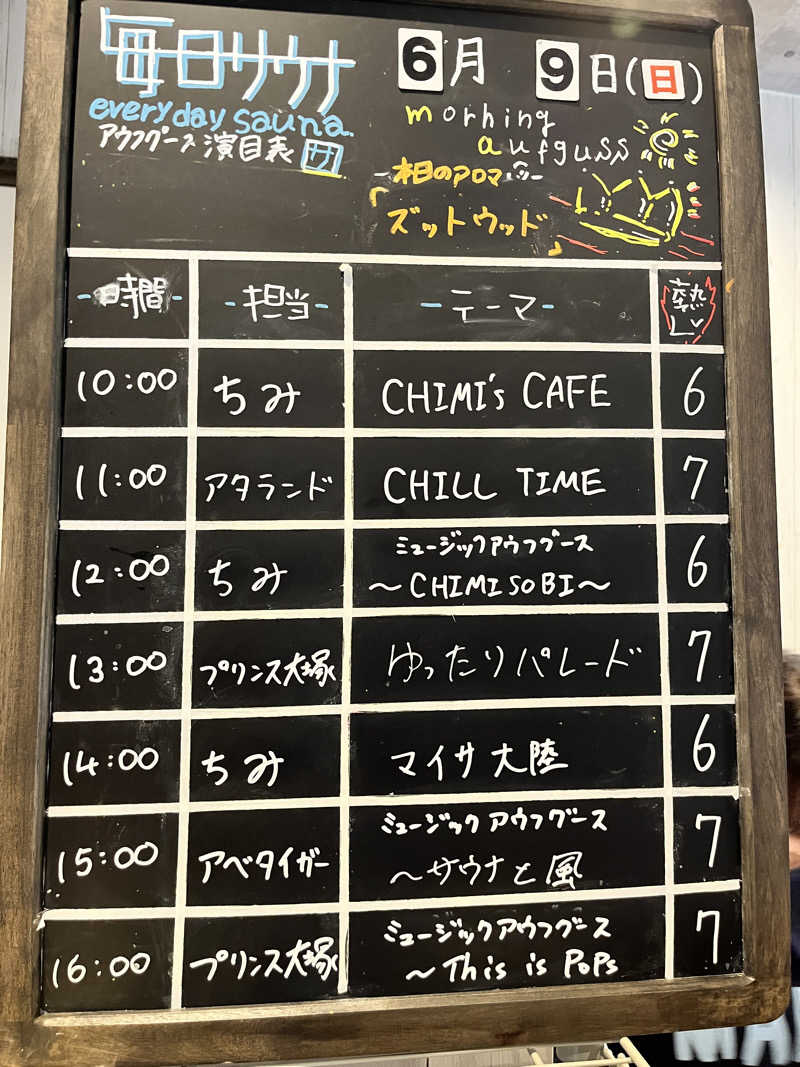 毎日サウナ
everyday sauna.
アウフグース 演目表
6月 9日(日)
morning
aufguss
本日のアロマ
「ズットウッド」
時間 担当 テーマ 熱レベ
10:00 ちみ CHIMI's CAFE 6
11:00 アタランド CHILL TIME 7
12:00 ちみ ミュージックアウフグース
～CHIMI SOBI～ 6
13:00 プリンス大塚 ゆったりパレード 7
14:00 ちみ マイサ大陸 6
15:00 アベタイガー ミュージック アウフグース
～サウナと風 7
16:00 プリンス大塚 ミュージックアウフグース
～This is PoPs 7